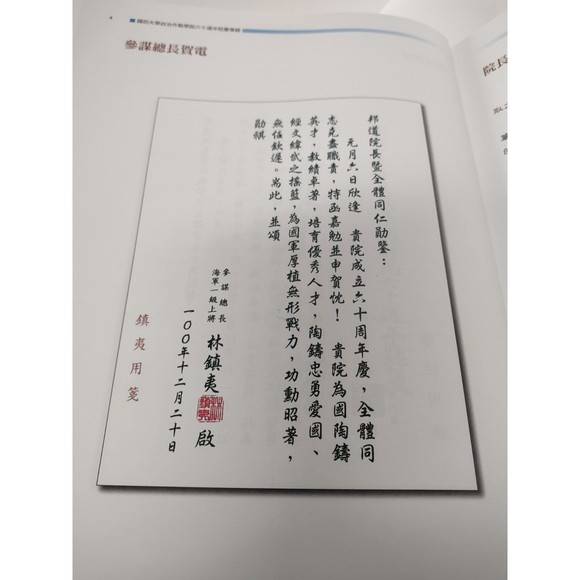 4
國防大學政治作戰學院六十週年院慶專輯
參謀總長賀電
邦道院長暨全體同仁勛鑒：
元月六日欣逢　貴院成立六十周年慶，全體同
志克盡職責，特函嘉勉並申賀忱！　貴院為國陶鑄
英才，教績卓著，培育優秀人才，陶鑄忠勇愛國、
經文緯武之搖籃，為國軍厚植無形戰力，功勳昭著，
無任欽遲。耑此，並頌
勛祺
參謀總長
海軍一級上將 林鎮夷 啟
一○○年十二月二十日
鎮夷用箋
院長